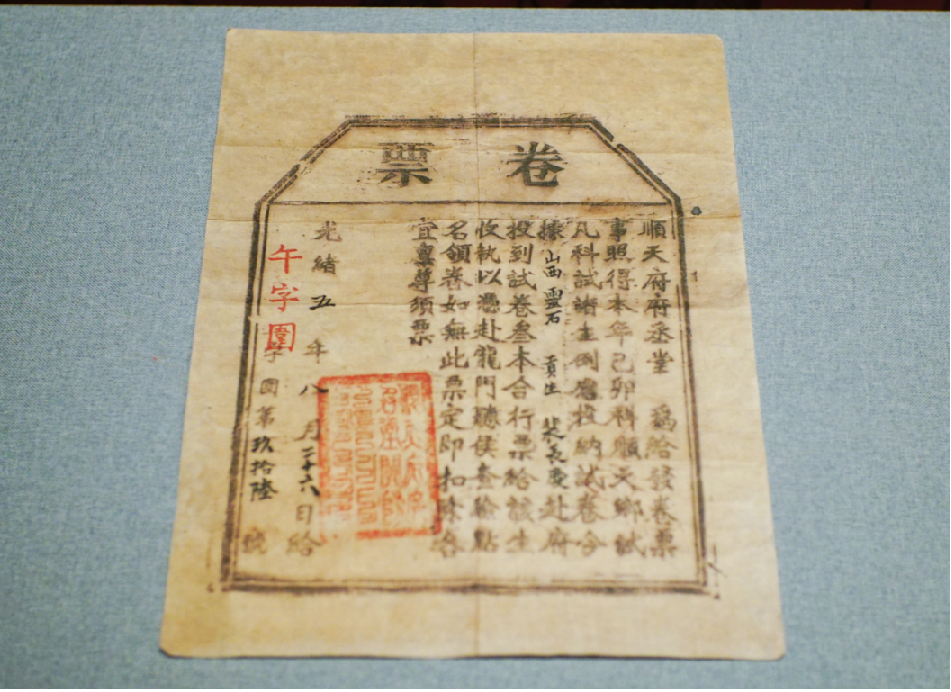 卷票
順天府府丞堂 為給發卷票
事照得本年己卯科順天鄉試
凡科試諸生例應投納試卷今
據山西靈石 貢生 長慶赴府
投到試卷叁本合行票給該生
收執以憑赴龍門聽候查驗點
名領卷如無此票定即扣除各
宜稟尊須票
光緒五年八月二十六日給
午字圍
字圍第玖拾陸號